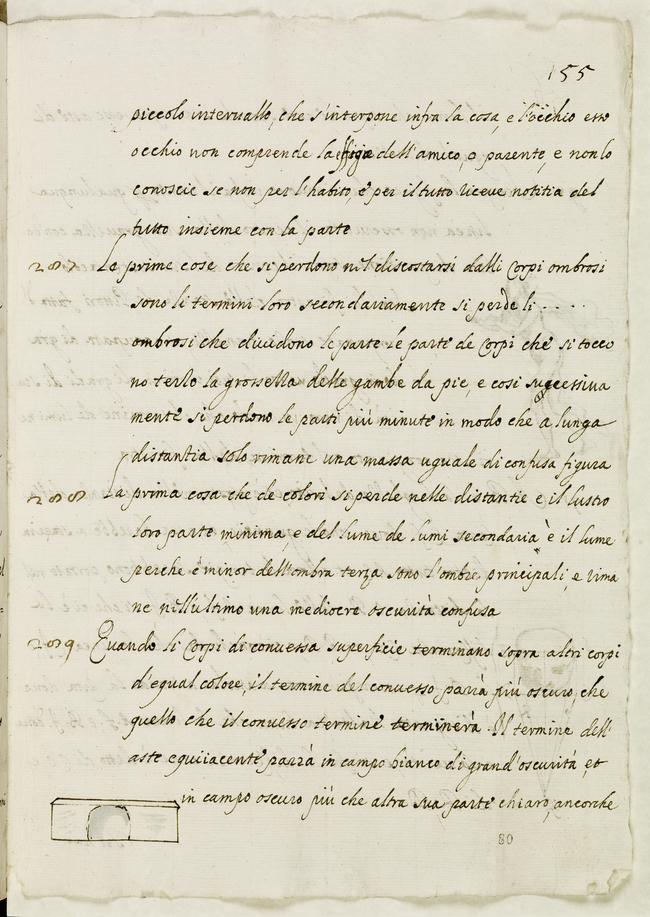 155
piccolo intervallo, che s'interpone infra la cosa, e l'occhio esso
occhio non comprende la effigie dell'amico, o parente, e non lo
conoscie se non per l'habito, e per il tutto riceve notitia del
tutto insieme con la parte
287 Le prime cose che si perdono nel discostarsi dalli Corpi ombrosi
sono li termini loro secondariamente si perde li . . . .
ombrosi che dividono le parte le parte de Corpi che si tocco
no terso la grossezza delle gambe da pie, e cosi successiva
mente si perdono le parti più minute in modo che a lunga
distantia solo rimane una massa uguale di confusa figura
288 La prima cosa che de colori si perde nelle distantie e il lustro
loro parte minima, e del lume de lumi secondaria è il lume
perche è minor dell'ombra terza sono l'ombre principali, e rima
ne nell'ultimo una mediocre oscurità confusa
289 Quando li Corpi di convessa superficie terminano sopra altri corpi
d'egual colore, il termine del convesso parrà più oscuro, che
quello che il convesso termine terminerà Il termine dell'
aste equiiacente parrà in campo bianco di grand'oscurità, et
in campo oscuro più che altra sua parte chiaro, ancorche
80